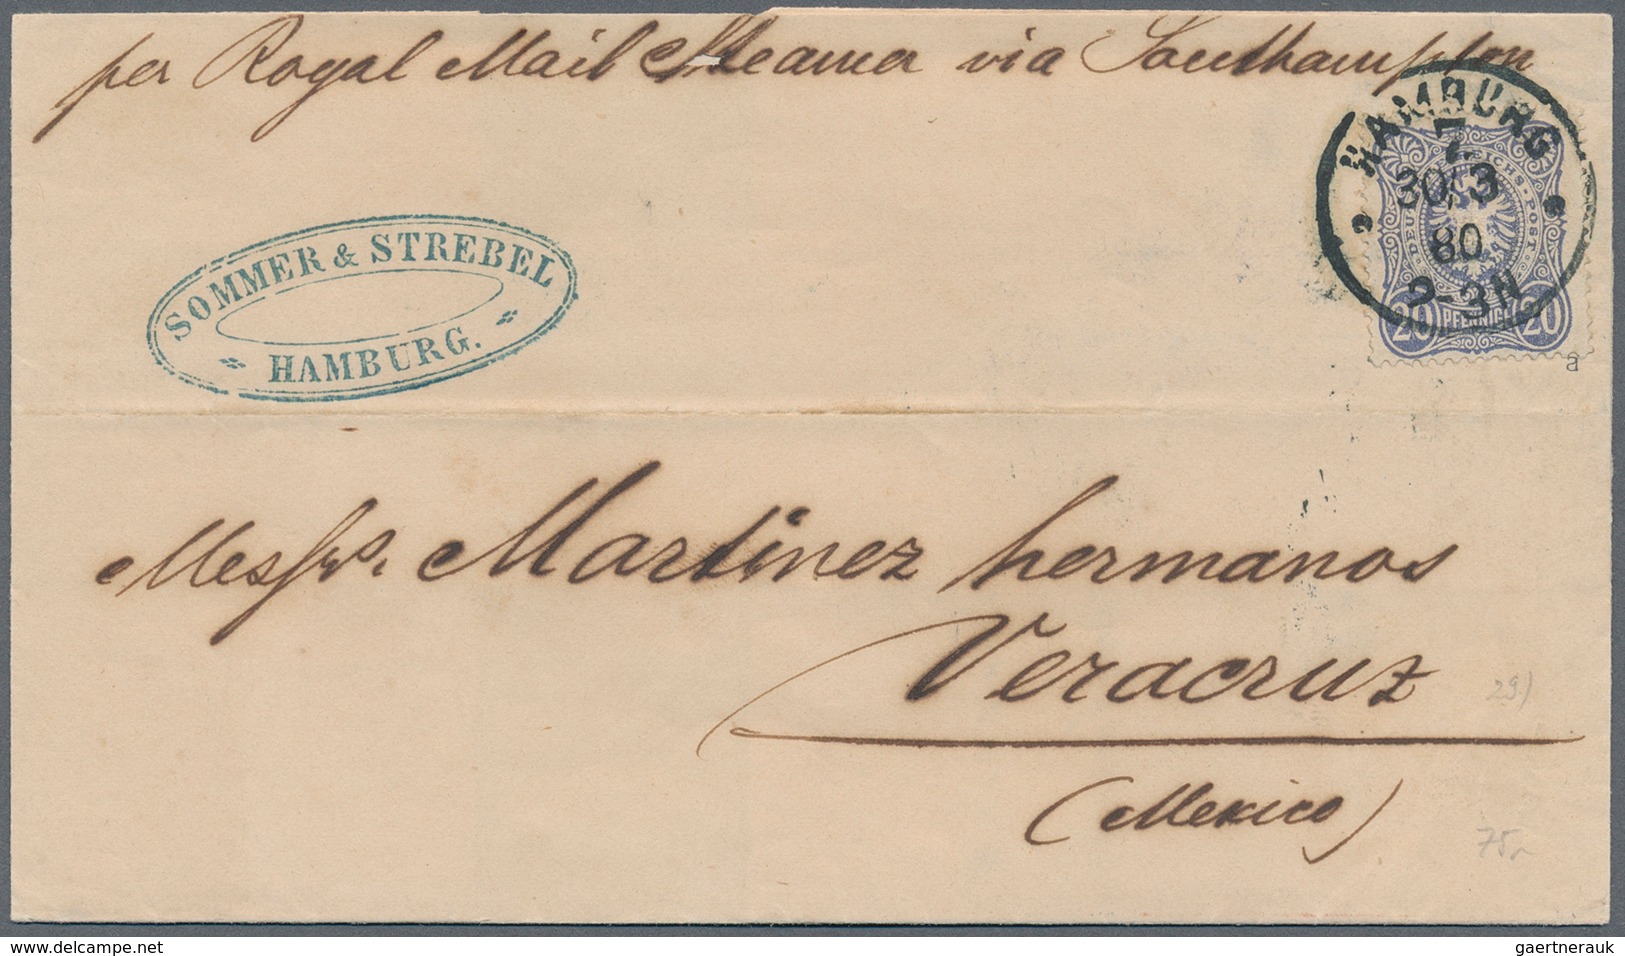 per Royal Mail Steamer via Southampton
HAMBURG
7.
30/3
80
2-3N
DEUTSCHE REICHS-POST
20 PFENNIG 20
a
SOMMER & STREBEL
HAMBURG.
Messrs. Martinez hermanos
Veracruz
29.)
(Mexico)
75,-
gaertnerauk
www.delcampe.net